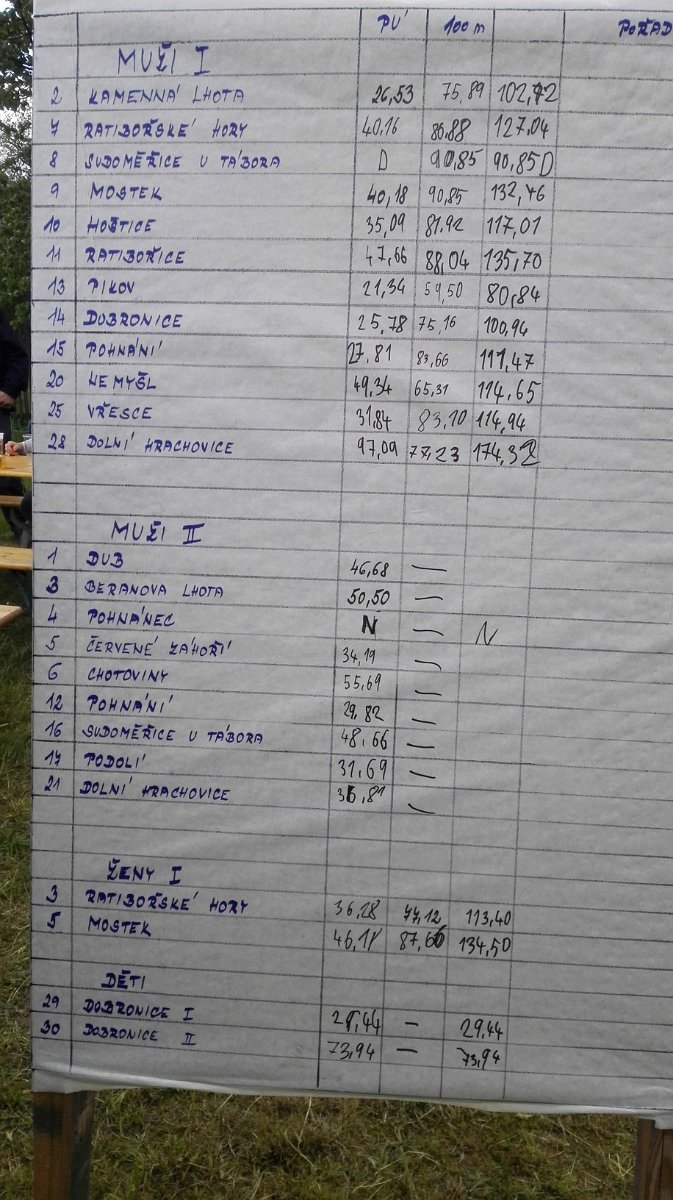 PÚ 100 m POŘAD
MUŽI I
2 KAMENNÁ LHOTA 26,53 75,89 102,42
7 RATIBOŘSKÉ HORY 40,16 86,88 127,04
8 SUDOMĚŘICE U TÁBORA D 90,85 90,85 D
9 MOSTEK 40,18 90,85 132,46
10 HOŠTICE 35,09 81,92 117,01
11 RATIBOŘICE 47,66 88,04 135,70
13 PIKOV 21,34 59,50 80,84
14 DOBRONICE 25,78 75,16 100,94
15 POHNÁNÍ 27,81 83,66 111,47
20 NEMYŠL 49,34 65,31 114,65
25 VŘESCE 31,84 83,10 114,94
28 DOLNÍ HRACHOVICE 97,09 77,23 174,32
MUŽI II
1 DUB 46,68 —
3 BERANOVA LHOTA 50,50 —
4 POHNÁNEC N — N
5 ČERVENÉ ZÁHOŘÍ 34,19 —
6 CHOTOVINY 55,69 —
12 POHNÁNÍ 29,82 —
16 SUDOMĚŘICE U TÁBORA 48,66 —
17 PODOLÍ 31,69 —
21 DOLNÍ HRACHOVICE 36,81 —
ŽENY I
3 RATIBOŘSKÉ HORY 36,28 77,12 113,40
5 MOSTEK 87,66 134,50
DĚTI
29 DOBRONICE I 29,44 — 29,44
30 DOBRONICE II 73,94 — 73,94